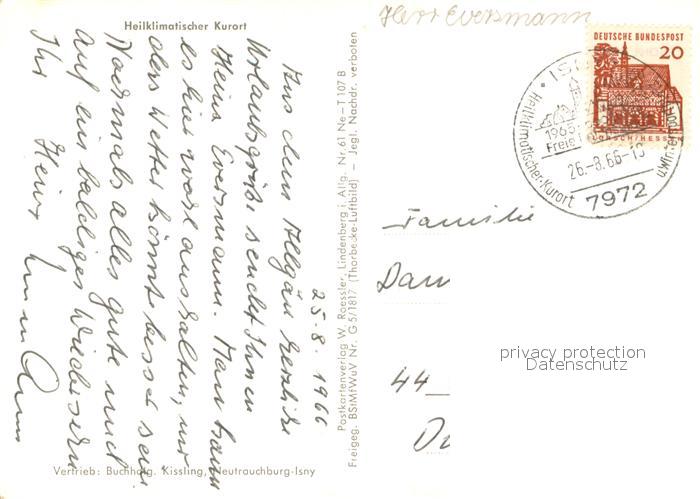 Heilklimatischer Kurort
25-8.1966
Aus dem Allgäu herzliche
Urlaubsgrüße sendet Ihnen
Heinz Eversmann. Man kann
es hier wohl aushalten, nur
das Wetter könnte besser sein
Nochmals alles gute und
auf ein baldiges Wiedersehn
Ihr Heinz
Vertrieb: Buchhdlg. Kissling, Neutrauchburg-Isny
Postkartenverlag W. Roessler, Lindenberg i. Allg. Nr. 61 Ne-T 107 B
Freigeg. BStMfWuV Nr. G 5/1817 (Thorbecke-Luftbild) - Jegl. Nachdr. verboten
Herr Eversmann
DEUTSCHE BUNDESPOST
20
LORSCH/HESSEN
1965
Heilklimatischer-Kurort
26.-8.66-18
7972
Familie
Dam
44
privacy protection
Datenschutz